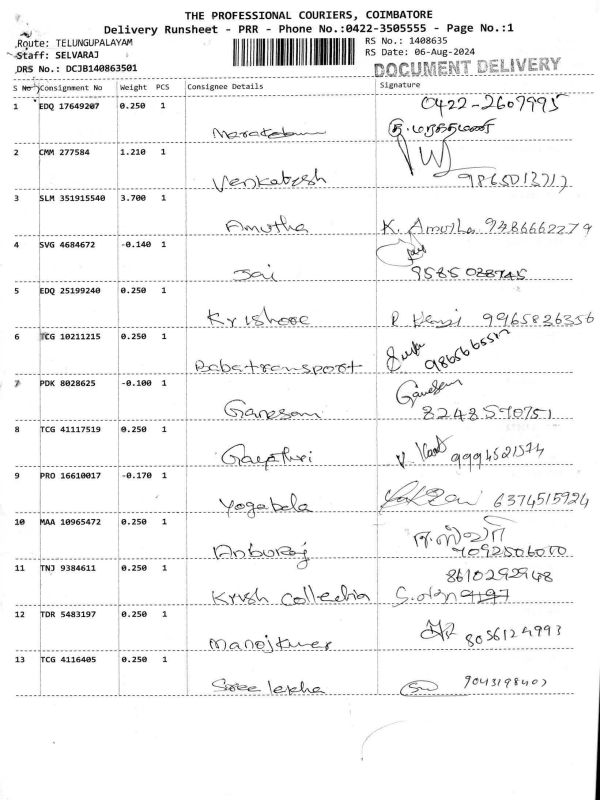 THE PROFESSIONAL COURIERS, COIMBATORE
Delivery Runsheet - PRR - Phone No.:0422-3505555 - Page No.:1
Route: TELUNGUPALAYAM
Staff: SELVARAJ
DRS No.: DCJB140863501
RS No.: 1408635
RS Date: 06-Aug-2024
DOCUMENT DELIVERY
S No Consignment No Weight PCS Consignee Details Signature
1 EDQ 17649207 0.250 1 0422-2607995
2 CMM 277584 1.210 1 Venkatesh
3 SLM 351915540 3.700 1 Amutha K. Amutha 9486662279
4 SVG 4684672 -0.140 1 Jai
5 EDQ 25199240 0.250 1 Krishore 9965836356
6 TCG 10211215 0.250 1 Baba transport
7 PDK 8028625 -0.100 1 Ganesan Ganesan 8248590751
8 TCG 41117519 0.250 1 Gayathri
9 PRO 16610017 -0.170 1 Yogabala 6374515924
10 MAA 10965472 0.250 1 Anburaj 7092506000
11 TNJ 9384611 0.250 1 Krish Collection 8610292948
12 TDR 5483197 0.250 1 Manojkumar 8056124993
13 TCG 4116405 0.250 1 Sree lekha 9043198407